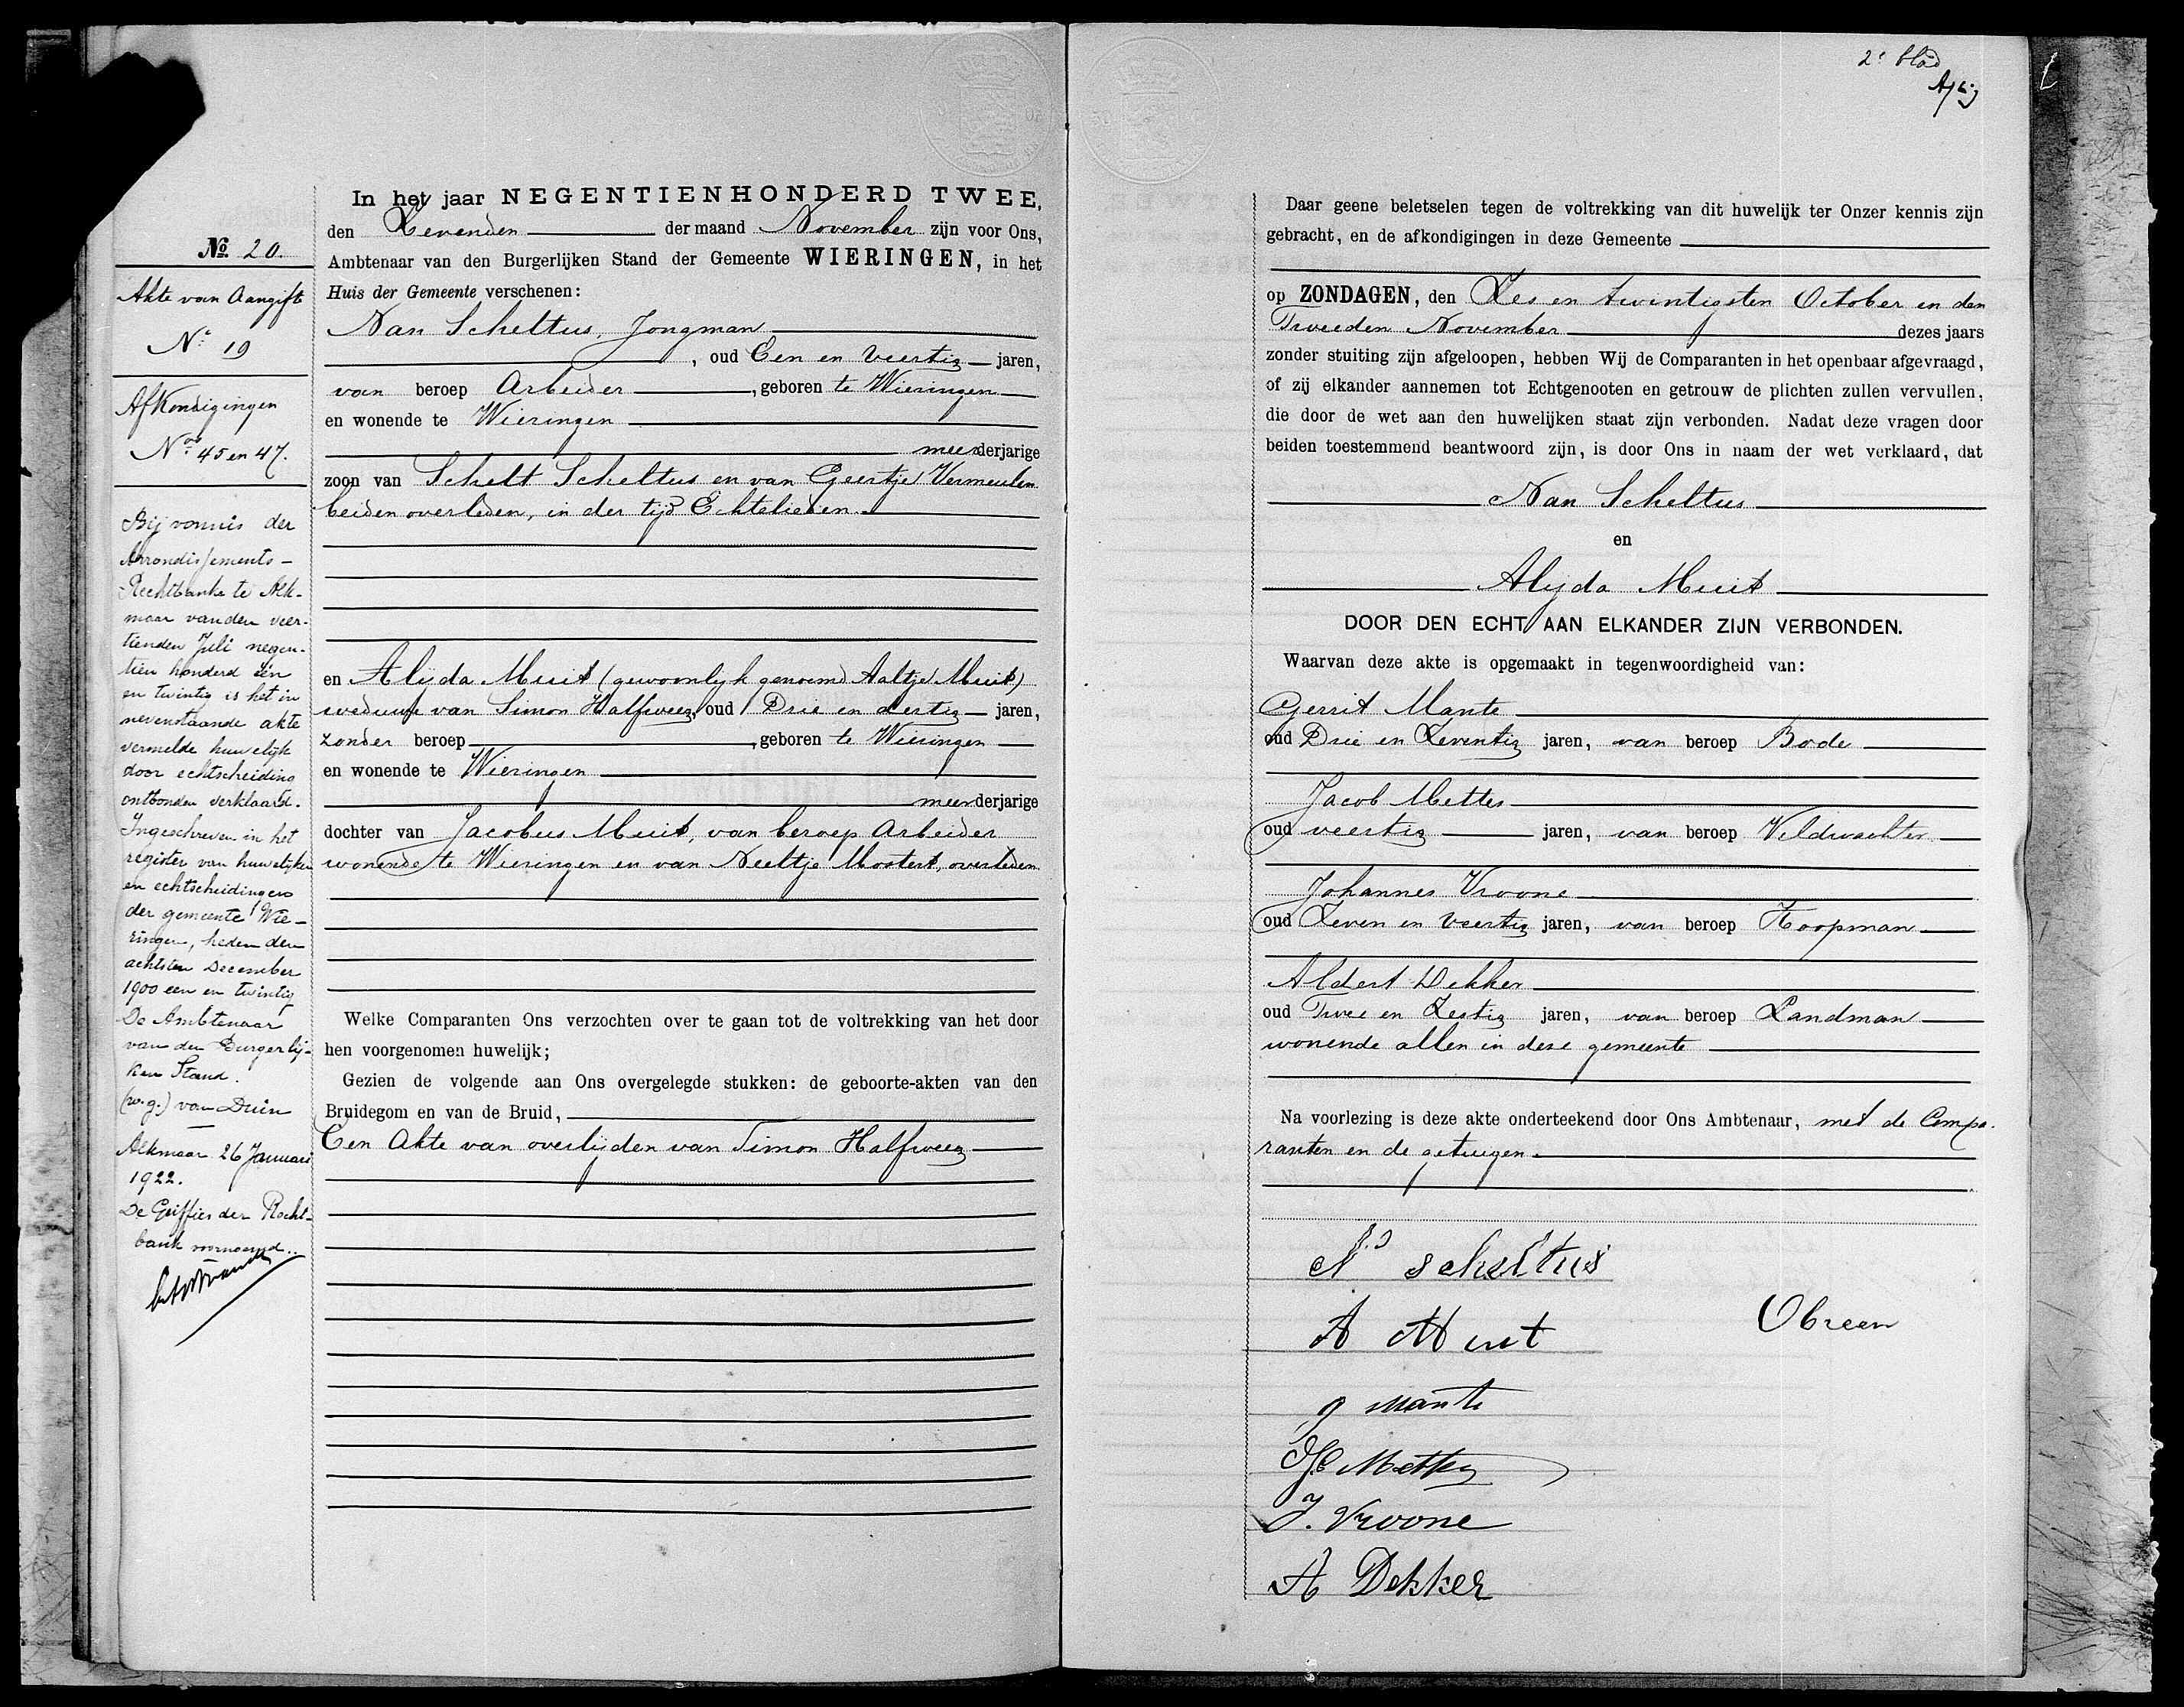 No. 20.
Akte van Aangift
No. 19
Afkondigingen
Nos 45 en 47.
Bij vonnis der
Arrondissements-
Rechtbank te Alk-
maar van den veer-
tienden Juli negen-
tien honderd één
en twintig is het in
nevenstaande akte
vermelde huwelijk
door echtscheiding
ontbonden verklaard.
Ingeschreven in het
register van huwelijken
en echtscheidingen
der gemeente Wie-
ringen, heden den
achtsten December
1900 een en twintig
De Ambtenaar
van den Burgerlij-
ken Stand.
(w.g.) van Duin
Alkmaar 26 Januari
1922.
De Griffier der Recht-
bank voornoemd..
In het jaar NEGENTIENHONDERD TWEE,
den Zevenden der maand November zijn voor Ons,
Ambtenaar van den Burgerlijken Stand der Gemeente WIERINGEN, in het
Huis der Gemeente verschenen:
Nan Scheltus, Jongman
, oud Een en Veertig jaren,
van beroep Arbeider, geboren te Wieringen
en wonende te Wieringen
meerderjarige
zoon van Schelt Scheltus en van Geertje Vermeulen
beiden overleden, in der tijd Echtelieden.
en Alijda Muit (gewoonlijk genoemd Aaltje Muit)
weduwe van Simon Halfweeg, oud Drie en dertig jaren,
zonder beroep, geboren te Wieringen
en wonende te Wieringen
meerderjarige
dochter van Jacobus Muit, van beroep Arbeider
wonende te Wieringen en van Neeltje Mostert, overleden
Welke Comparanten Ons verzochten over te gaan tot de voltrekking van het door
hen voorgenomen huwelijk;
Gezien de volgende aan Ons overgelegde stukken: de geboorte-akten van den
Bruidegom en van de Bruid,
Een Akte van overlijden van Simon Halfweeg
2e blad
Daar geene beletselen tegen de voltrekking van dit huwelijk ter Onzer kennis zijn
gebracht, en de afkondigingen in deze Gemeente
op ZONDAGEN, den Zes en twintigsten October en den
Tweeden November dezes jaars
zonder stuiting zijn afgeloopen, hebben Wij de Comparanten in het openbaar afgevraagd,
of zij elkander aannemen tot Echtgenooten en getrouw de plichten zullen vervullen,
die door de wet aan den huwelijken staat zijn verbonden. Nadat deze vragen door
beiden toestemmend beantwoord zijn, is door Ons in naam der wet verklaard, dat
Nan Scheltus
en
Alijda Muit
DOOR DEN ECHT AAN ELKANDER ZIJN VERBONDEN.
Waarvan deze akte is opgemaakt in tegenwoordigheid van:
Gerrit Mante
oud Drie en Zeventig jaren, van beroep Bode
Jacob Mettes
oud veertig jaren, van beroep Veldwachter
Johannes Vroone
oud Zeven en Veertig jaren, van beroep Koopman
Aldert Dekker
oud Twee en Zestig jaren, van beroep Landman
wonende allen in deze gemeente
Na voorlezing is deze akte onderteekend door Ons Ambtenaar, met de Compa-
ranten en de getuigen.
N. Scheltus
A Muit
Obreen
g mante
Mettes
J. Vroone
A Dekker